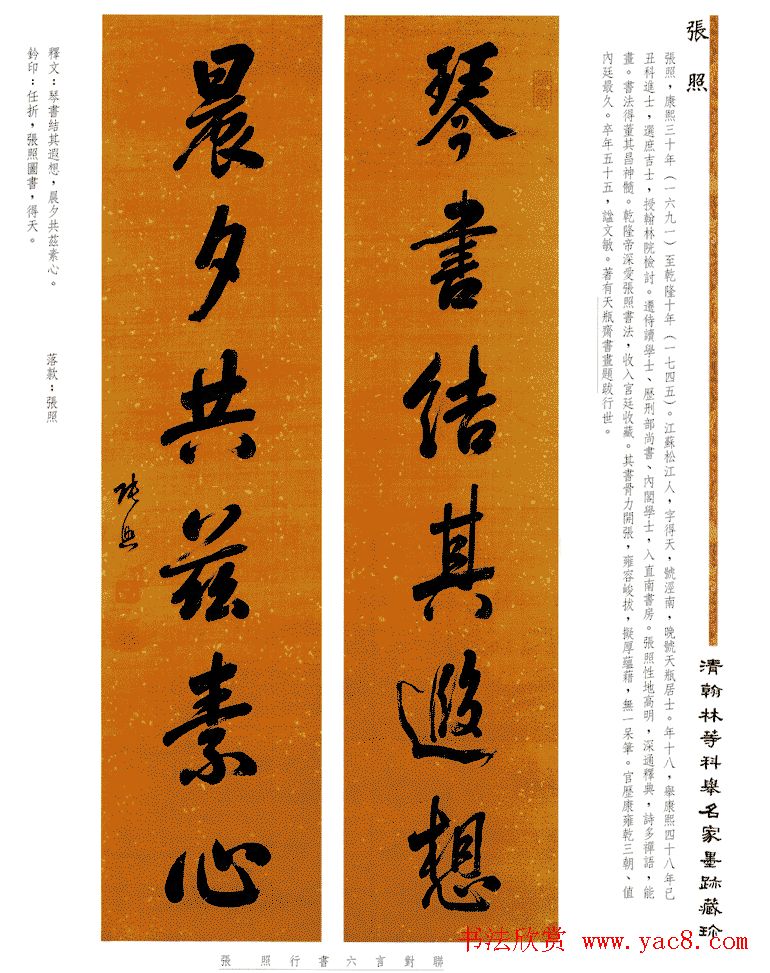 張照
清翰林等科舉名家墨跡藏珍
張照，康熙三十年（一六九一）至乾隆十年（一七四五）。江蘇松江人，字得天，號涇南，晚號天瓶居士。年十八，舉康熙四十八年己
丑科進士，選庶吉士，授翰林院檢討。遷侍讀學士、歷刑部尚書、內閣學士，入直南書房。張照性地高明，深通釋典，詩多禪語，能
畫。書法得董其昌神髓。乾隆帝深愛張照書法，收入宮廷收藏。其書骨力開張，雍容峻拔，擬厚蘊藉，無一呆筆。官歷康雍乾三朝、值
內廷最久。卒年五十五，謚文敏。著有天瓶齋書畫題跋行世。
琴書結其遐想
晨夕共茲素心
張照
釋文：琴書結其遐想，晨夕共茲素心。 落款：張照
鈐印：任折，張照圖書，得天。
張照行書六言對聯
书法欣赏 www.yac8.com